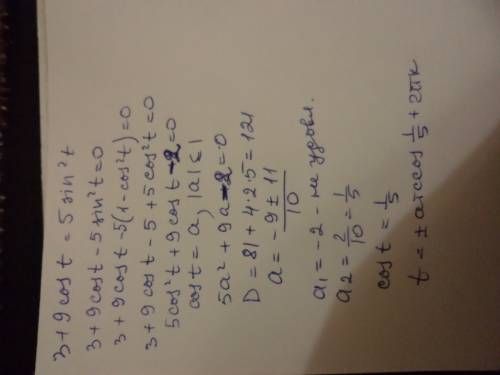 3 + 9 cos t = 5 sin²t
3 + 9 cos t - 5 sin²t = 0
3 + 9 cos t - 5(1 - cos²t) = 0
3 + 9 cos t - 5 + 5 cos²t = 0
5 cos²t + 9 cos t - 2 = 0
cos t = a, |a| ≤ 1
5a² + 9a - 2 = 0
D = 81 + 4·2·5 = 121
a = (-9 ± 11)/10
a₁ = -2 - не удовл.
a₂ = 2/10 = 1/5
cos t = 1/5
t = ± arccos 1/5 + 2πk